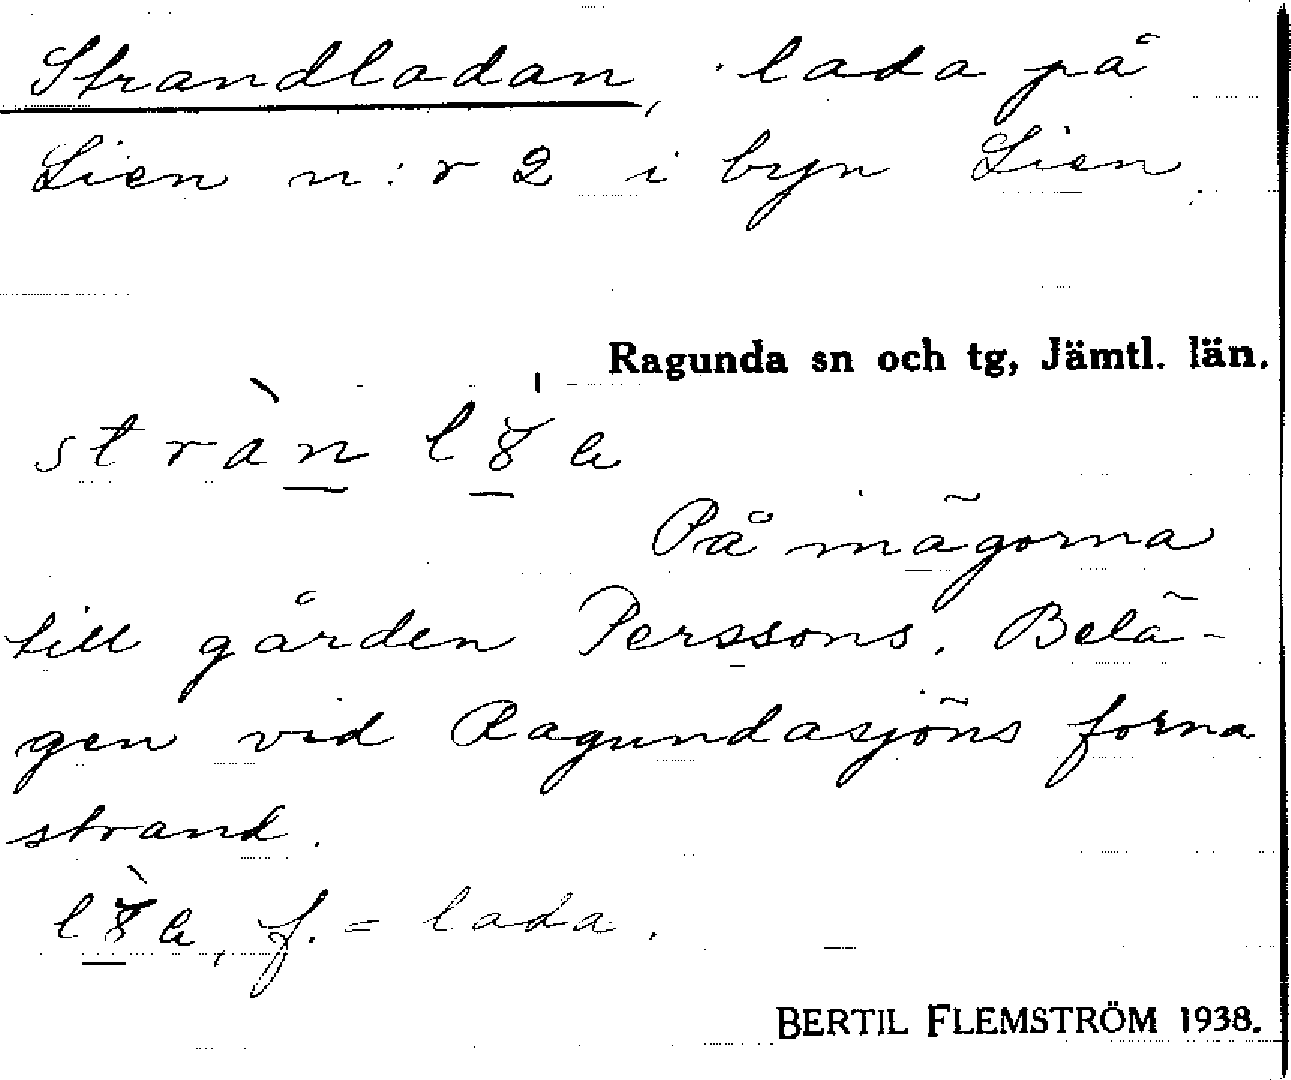 Strandladan, lada på
Lien n:r 2 i byn Lien.
Ragunda sn och tg, Jämtl. län.
På inägorna
till gården Perssons. Belä-
gen vid Ragundasjöns forna
strand.
f. = lada.
BERTIL FLEMSTRÖM 1938.